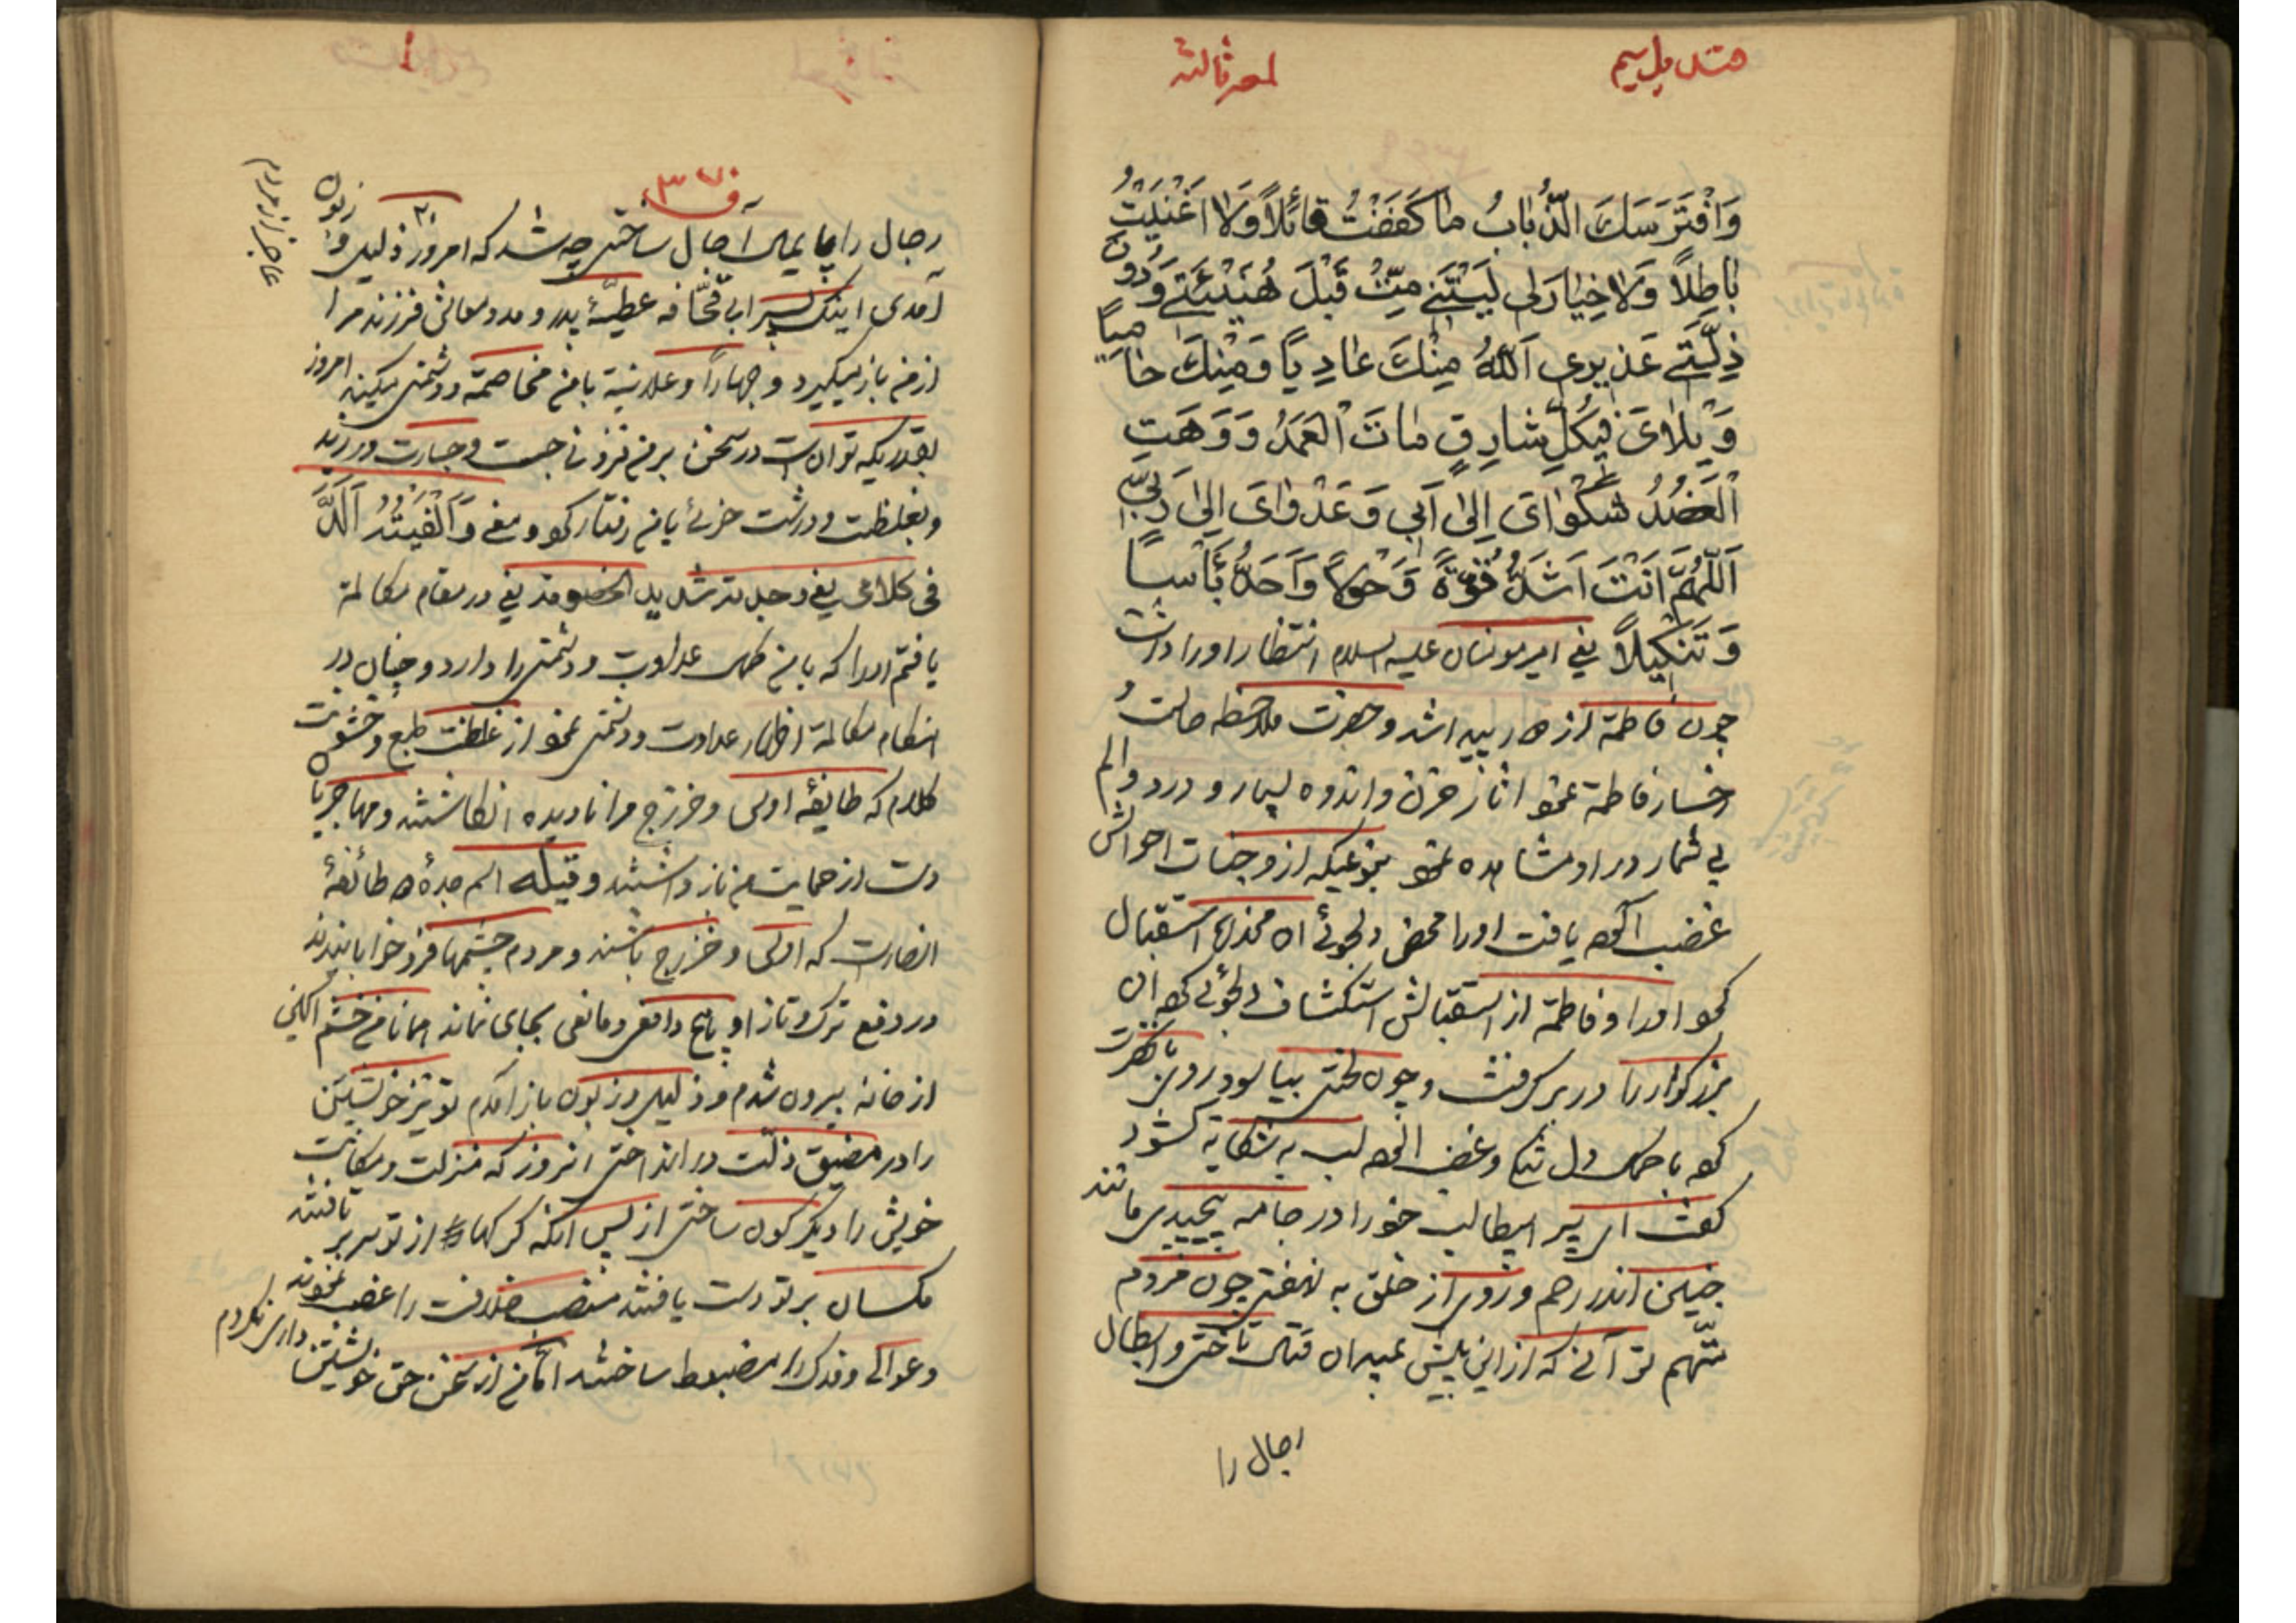 لمعه ثالثه
وَافْتَرَسَكَ الذُّبابُ ما كَفَفْتُ قائِلاً وَلا اَغْنَيْتُ
باطِلاً وَلا خِيارَ لى لَيْتَنى مِتُّ قَبْلَ هُنَيْئَتى وَدُونَ
ذِلَّتى عَذيرى اَللهُ مِنْكَ عادِياً وَمِنْكَ حامِياً
وَيْلاىَ فى كُلِّ شارِقٍ ماتَ الْعَمَدُ وَوَهَتِ
الْعَضُدُ شَكْواىَ اِلىٰ اَبى وَعَدْواىَ اِلىٰ رَبّى
اَللّهُمَّ اَنْتَ اَشَدُّ قُوَّةً وَحَوْلاً وَاَحَدُّ بَأْساً
وَتَنْكيلاً يعنى امير مؤمنان عليه السلام انتظار او را داشت
چون فاطمة از در پيدا شد و حضرت ملاحظه حالت
رخسار فاطمة نمود آثار حزن و اندوه بسيار و درد و الم
بى شمار در او مشاهده نمود بنوعيكه از وجنات احوالش
غضب آلوده يافت او را محض دلجوئى آن مخدره استقبال
نمود او را و فاطمة از استقبالش استكشاف دلجوئى كرده آن
بزرگوار را در بر گرفت و چون لختى بياسود روى با حضرت
كرده با دل تنگ و غضب آلوده لب به شكايه گشود
گفت اى پسر ابيطالب خود را در جامه پيچيدى مانند
جنين اندر رحم و روى از خلق به نهفتى چون مردم
متّهم تو آنى كه از اين پيش بميدان قتال تاختى و ابطال
رجال را
رجال را پايمال آجال ساختى چه شد كه امروز ذليل و زبون
آمدى اينك پسر ابى قحّافه عطيّهٔ پدر و مدد معاش فرزند مرا
از من باز ميگيرد و جهاراً و علانية با من مخاصمة و دشمنى ميكند امروز
بقدريكه توانست در سخن بر من فزونى جست و جسارت ورزيد
و بغلظت و درشت خوئى با من رفتار كرد و يعنى وَاَلْفَيْتُهُ اَلَدَّ
فى كلامى يعنى وجدته شديد الخصومة يعنى در مقام مكالمة
يافتم او را كه با من كمال عداوت و دشمنى را دارد و چنان در
هنگام مكالمة اظهار عداوت و دشمنى نمود از غلظت طبع و خشونت
كلام كه طايفهٔ اوس و خزرج مرا ناديده انگاشتند و مهاجريان
دست از حمايت من باز داشتند و قيله اسم جدهٔ طائفهٔ
انصارست كه اوس و خزرج باشند و مردم چشمها فرو خوابانيدند
در دفع ترك و تاز او هيچ دافعى و مانعى بجاى نماند همانا من خشم آگين
از خانه بيرون شدم و ذليل و زبون باز آمدم تو نيز خويشتن
را در مضيق ذلّت در انداختى آنروز كه منزلت و مكانت
خويش را ديگرگون ساختى از پس آنكه گرگها از تو سر بر تافتند
مگسان بر تو دست يافتند منصب خلافت را غصب نمودند
و عوالى و فدك را مضبوط ساختند امّا من از سخن حق خويشتن دارى نكردم